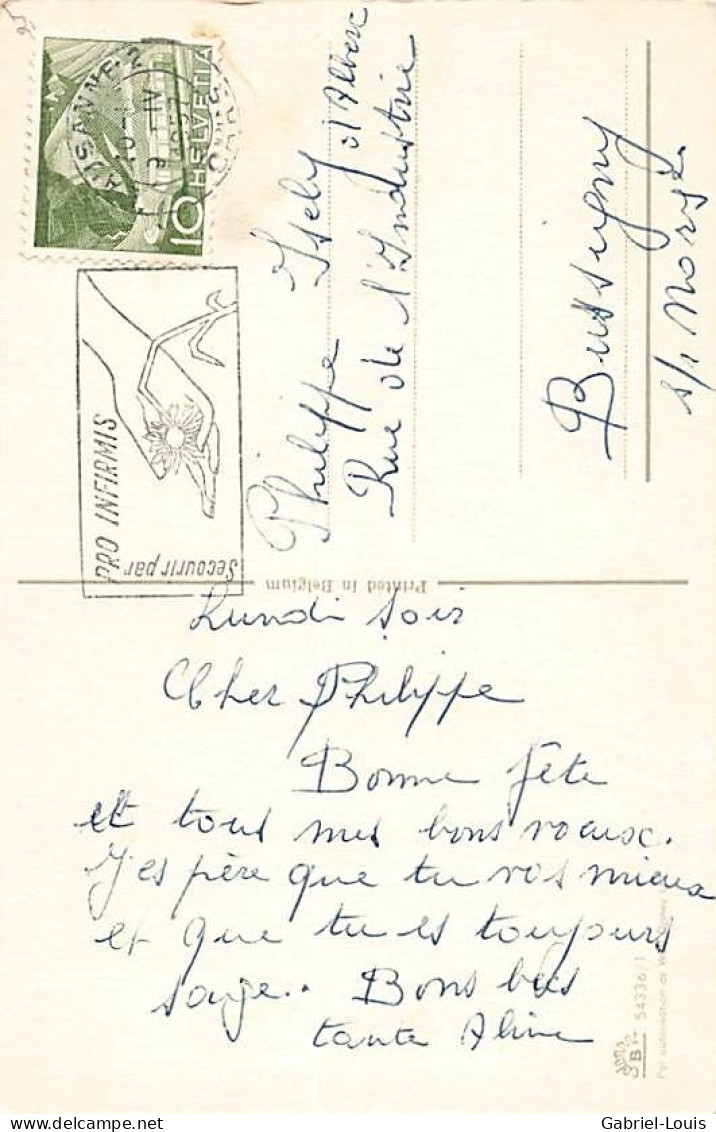 HELVETIA
10
LAUSANNE
PRO INFIRMIS
Secourir par
Philippe Isely d'Albert
Rue de l'Industrie
Bussigny
s/s Morges
Printed in Belgium
Lundi soir
Cher Philippe
Bonne fête
et tous mes bons voeux.
J'espère que tu vas mieux
et que tu es toujours
sage.. Bons bes
tante Aline
54336/1
Par autorisation de
Gabriel-Louis